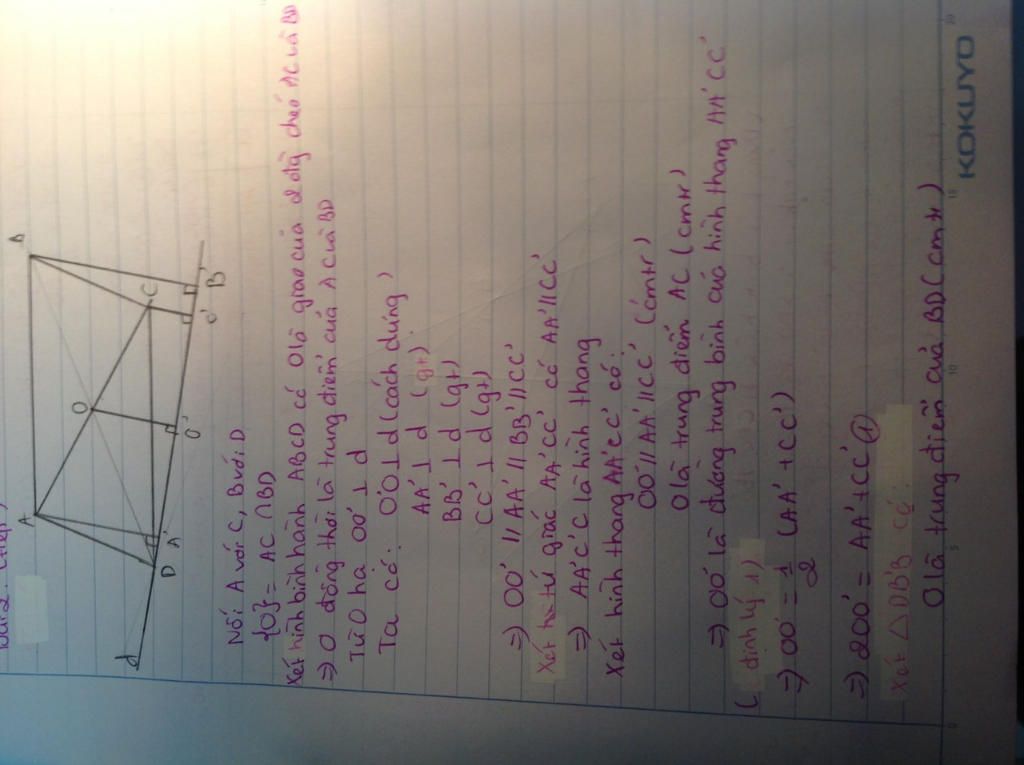 Bài 2: (tiếp)
A
B
O
C
d
D
A'
O'
C'
B'
Nối A với C, B với D
{O} = AC ∩ BD
Xét hình bình hành ABCD có O là giao của 2 đg chéo AC và BD
=> O đồng thời là trung điểm của AC và BD
Từ O hạ OO' ⊥ d
Ta có: OO' ⊥ d (cách dựng)
AA' ⊥ d (gt)
BB' ⊥ d (gt)
CC' ⊥ d (gt)
=> OO' // AA' // BB' // CC'
Xét tứ giác AA'CC' có AA' // CC'
=> AA'C'C là hình thang
Xét hình thang AA'CC' có:
OO' // AA' // CC' (cmtr)
O là trung điểm AC (cmtr)
=> OO' là đường trung bình của hình thang AA'CC'
(định lý 1)
=> OO' = 1/2 (AA' + CC')
=> 2OO' = AA' + CC' ①
Xét △ DB'B có:
O là trung điểm của BD (cmtr)
KOKUYO
0
5
10
15
20